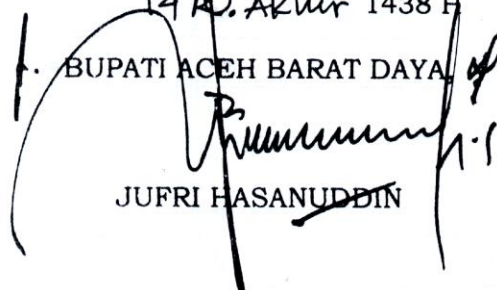 14 Rb. Akhir 1438 H
BUPATI ACEH BARAT DAYA,
JUFRI HASANUDDIN